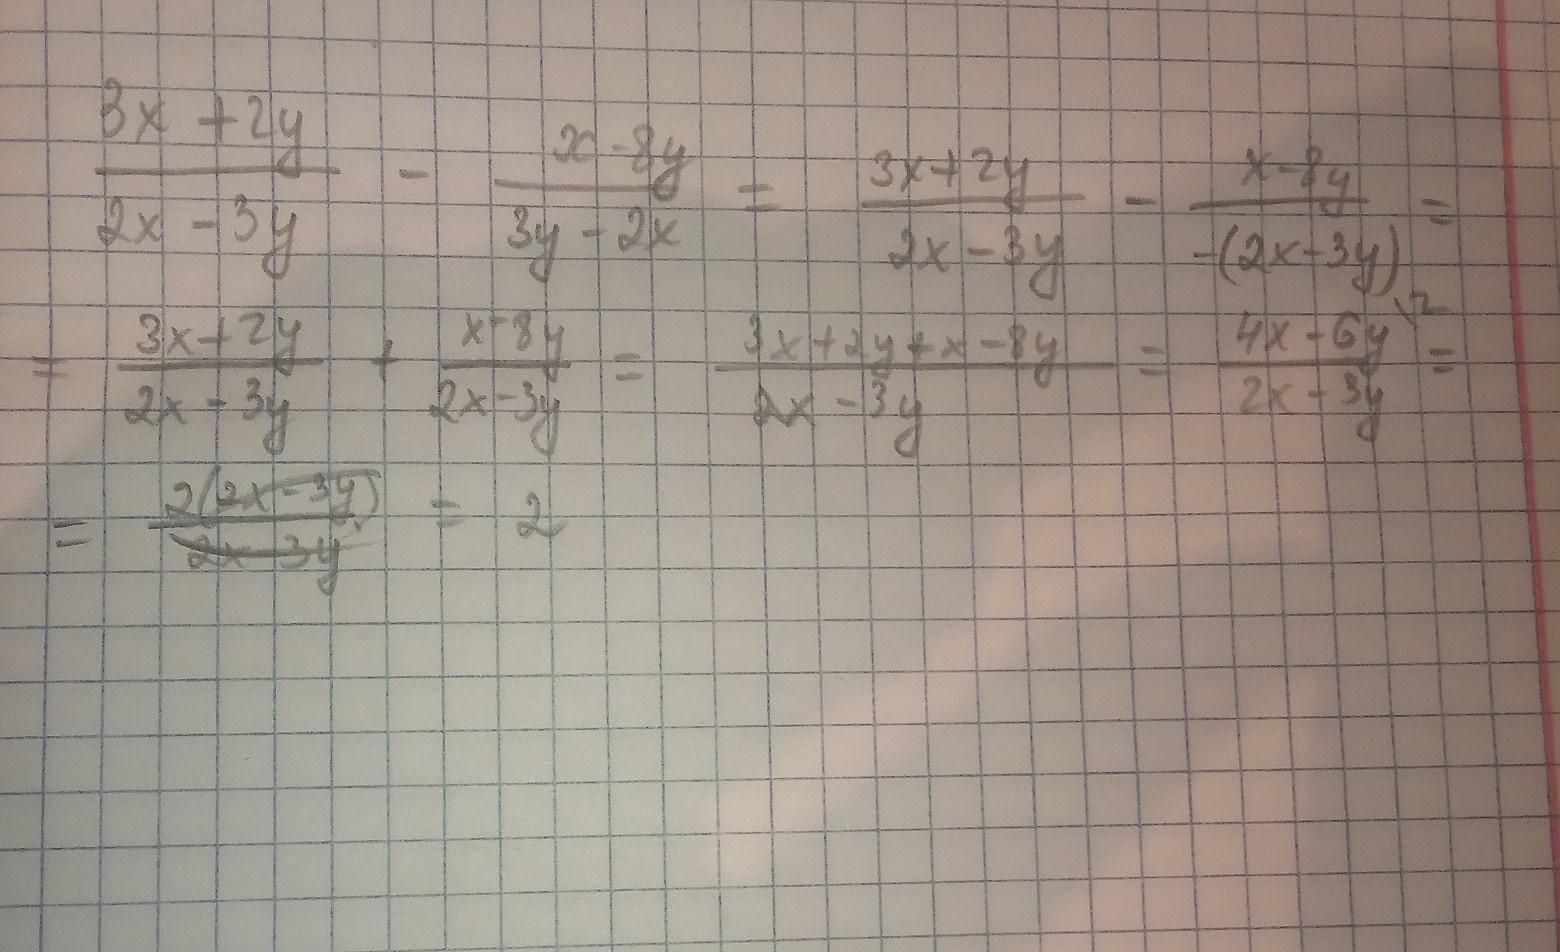 (3x + 2y)/(2x - 3y) - (x - 8y)/(3y - 2x) = (3x + 2y)/(2x - 3y) - (x - 8y)/(-(2x - 3y)) =
= (3x + 2y)/(2x - 3y) + (x - 8y)/(2x - 3y) = (3x + 2y + x - 8y)/(2x - 3y) = (4x - 6y \2)/(2x - 3y) =
= (2(2x - 3y))/(2x - 3y) = 2